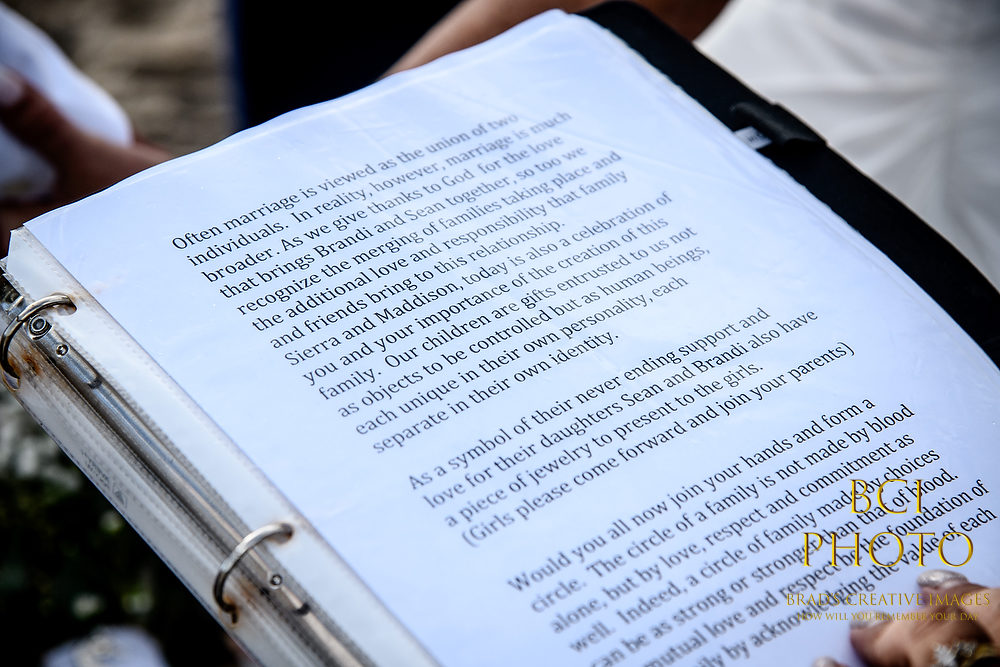 Often marriage is viewed as the union of two
individuals. In reality, however, marriage is much
broader. As we give thanks to God for the love
that brings Brandi and Sean together, so too we
recognize the merging of families taking place and
the additional love and responsibility that family
and friends bring to this relationship.
Sierra and Maddison, today is also a celebration of
you and your importance of the creation of this
family. Our children are gifts entrusted to us not
as objects to be controlled but as human beings,
each unique in their own personality, each
separate in their own identity.
As a symbol of their never ending support and
love for their daughters Sean and Brandi also have
a piece of jewelry to present to the girls.
(Girls please come forward and join your parents)
Would you all now join your hands and form a
circle. The circle of a family is not made by blood
alone, but by love, respect and commitment as
well. Indeed, a circle of family made by choices
can be as strong or stronger than that of blood
mutual love and respect be the foundation of
by acknowledging the value of each
BCI
PHOTO
BRAD'S CREATIVE IMAGES
NOW WILL YOU REMEMBER YOUR DAY